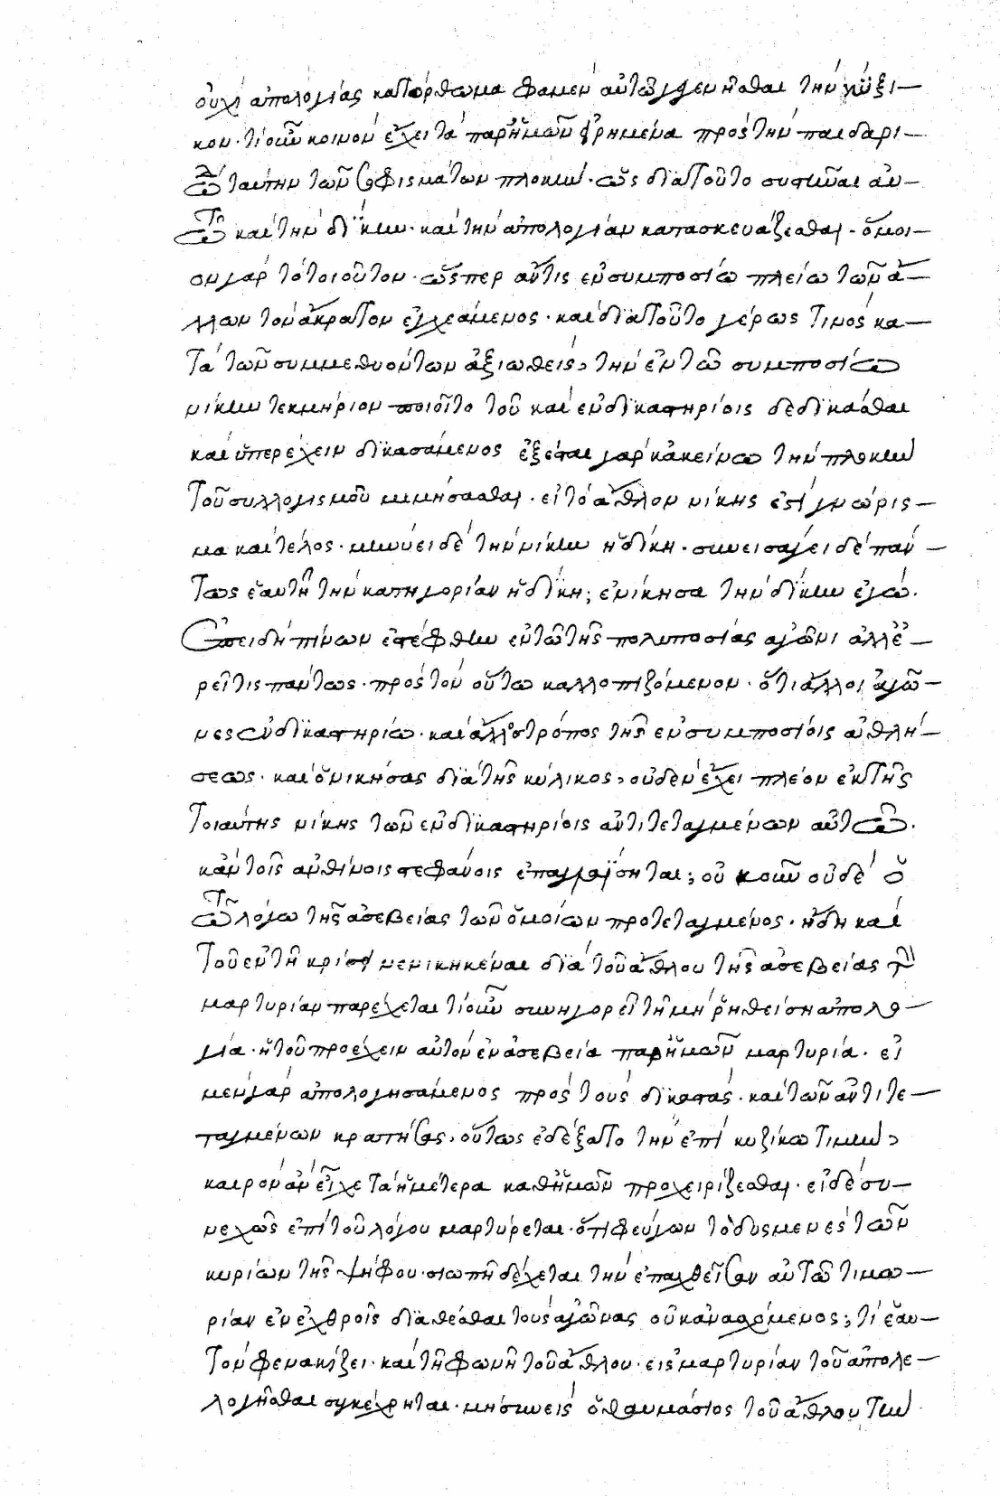 οὐχὶ ἀπολογίας κατόρθωμα φαμὲν αὐτῶ γεγενῆσθαι τὴν κύζι-
κον· τί οὖν κοινὸν ἔχει τὰ παρ' ἡμῶν εἰρημένα πρὸς τὴν παιδαρι-
ώ ταύτην τῶν σοφισμάτων πλοκὴν· ὡς διὰ τοῦτο συστῆναι αὐ-
τῶ καὶ τὴν δίκην· καὶ τὴν ἀπολογίαν κατασκευάζεσθαι· ὅμοι-
ον γὰρ τὸ τοιοῦτον· ὥσπερ ἄν τις ἐν συμποσίω πλείω τῶν ἄ-
λλων τὸν ἄκρατον ἐγχεάμενος· καὶ διὰ τοῦτο γέρως τινὸς κα-
τὰ τῶν συμμεθυόντων ἀξιωθεὶς, τὴν ἐν τῶ συμποσίω
νίκην τεκμήριον ποιοῖτο τοῦ καὶ ἐν δικαστηρίοις δεδικάσθαι
καὶ ὑπερέχειν δικασάμενος ἐξέσται γὰρ κἀκείνω τὴν πλοκὴν
τοῦ συλλογισμοῦ μιμήσασθαι· εἰ τὸ ἆθλον νίκης ἐστὶ γνώρισ-
μα καὶ τέλος· μηνύει δὲ τὴν νίκην ἡ δίκη· συνεισάγει δὲ πάν-
τως ἑαυτῆ τὴν κατηγορίαν ἡ δίκη; ἐνίκησα τὴν δίκην ἐγώ·
Ἐπειδὴ πίνων ἐστέφθην ἐν τῶ τῆς πολυποσίας ἀγῶνι ἀλλ' ἐ-
ρεῖ τις πάντως· πρὸς τὸν οὕτω καλλοπιζόμενον· ὅτι ἄλλοι ἀγῶ-
νες ἐν δικαστηρίω· καὶ ἄλλος τρόπος τῆς ἐν συμποσίοις ἀθλή-
σεως· καὶ ὁ νικήσας διὰ τῆς κύλικος, οὐδὲν ἔχει πλέον ἐκ τῆς
τοιαύτης νίκης τῶν ἐν δικαστηρίοις ἀντιτεταγμένων αὐτῶ·
κἂν τοῖς ἀνθίνοις στεφάνοις ἐπαγραΐσηται; οὐκοῦν οὐδὲ ὁ
τῶ λόγω τῆς ἀσεβείας τῶν ὁμοίων προτεταγμένος· ἤδη καὶ
τοῦ ἐν τῆ κρίσει νενικηκέναι διὰ τοῦ ἄθλου τῆς ἀσεβείας τὴν
μαρτυρίαν παρέχεται τί οὖν συνηγορεῖ τῆ μὴ ῥηθείση ἀπολο-
γία· ἡ τοῦ προέχειν αὐτὸν ἐν ἀσεβεία παρ' ἡμῶν μαρτυρία· εἰ
μὲν γὰρ ἀπολογησάμενος πρὸς τοὺς δικαστάς· καὶ τῶν ἀντιτε-
ταγμένων κρατήσας, οὕτως ἐδέξατο τὴν ἐπὶ κυζίκω τιμήν,
καιρὸν ἂν εἶχε τὰ ἡμέτερα καθ' ἡμῶν προχειρίζεσθαι· εἰ δὲ συ-
νεχῶς ἐπὶ τοῦ λόγου μαρτύρεται· ὅτι φεύγων τὸ δυσμενὲς τῶν
κυρίων τῆς ψήφου· σιωπῆ δέχεται τὴν ἐπαχθεῖσαν αὐτῶ τιμω-
ρίαν ἐν ἐχθροῖς διαθέσθαι τοὺς ἀγῶνας οὐκ ἀνασχόμενος; τί ἑαυ-
τὸν φενακίζει· καὶ τῆ φωνῆ τοῦ ἄθλου· εἰς μαρτυρίαν τοῦ ἀπολε-
λογῆσθαι συγκέχρηται· μὴ συνεὶς ὁ θαυμάσιος τοῦ ἄθλου τὴν